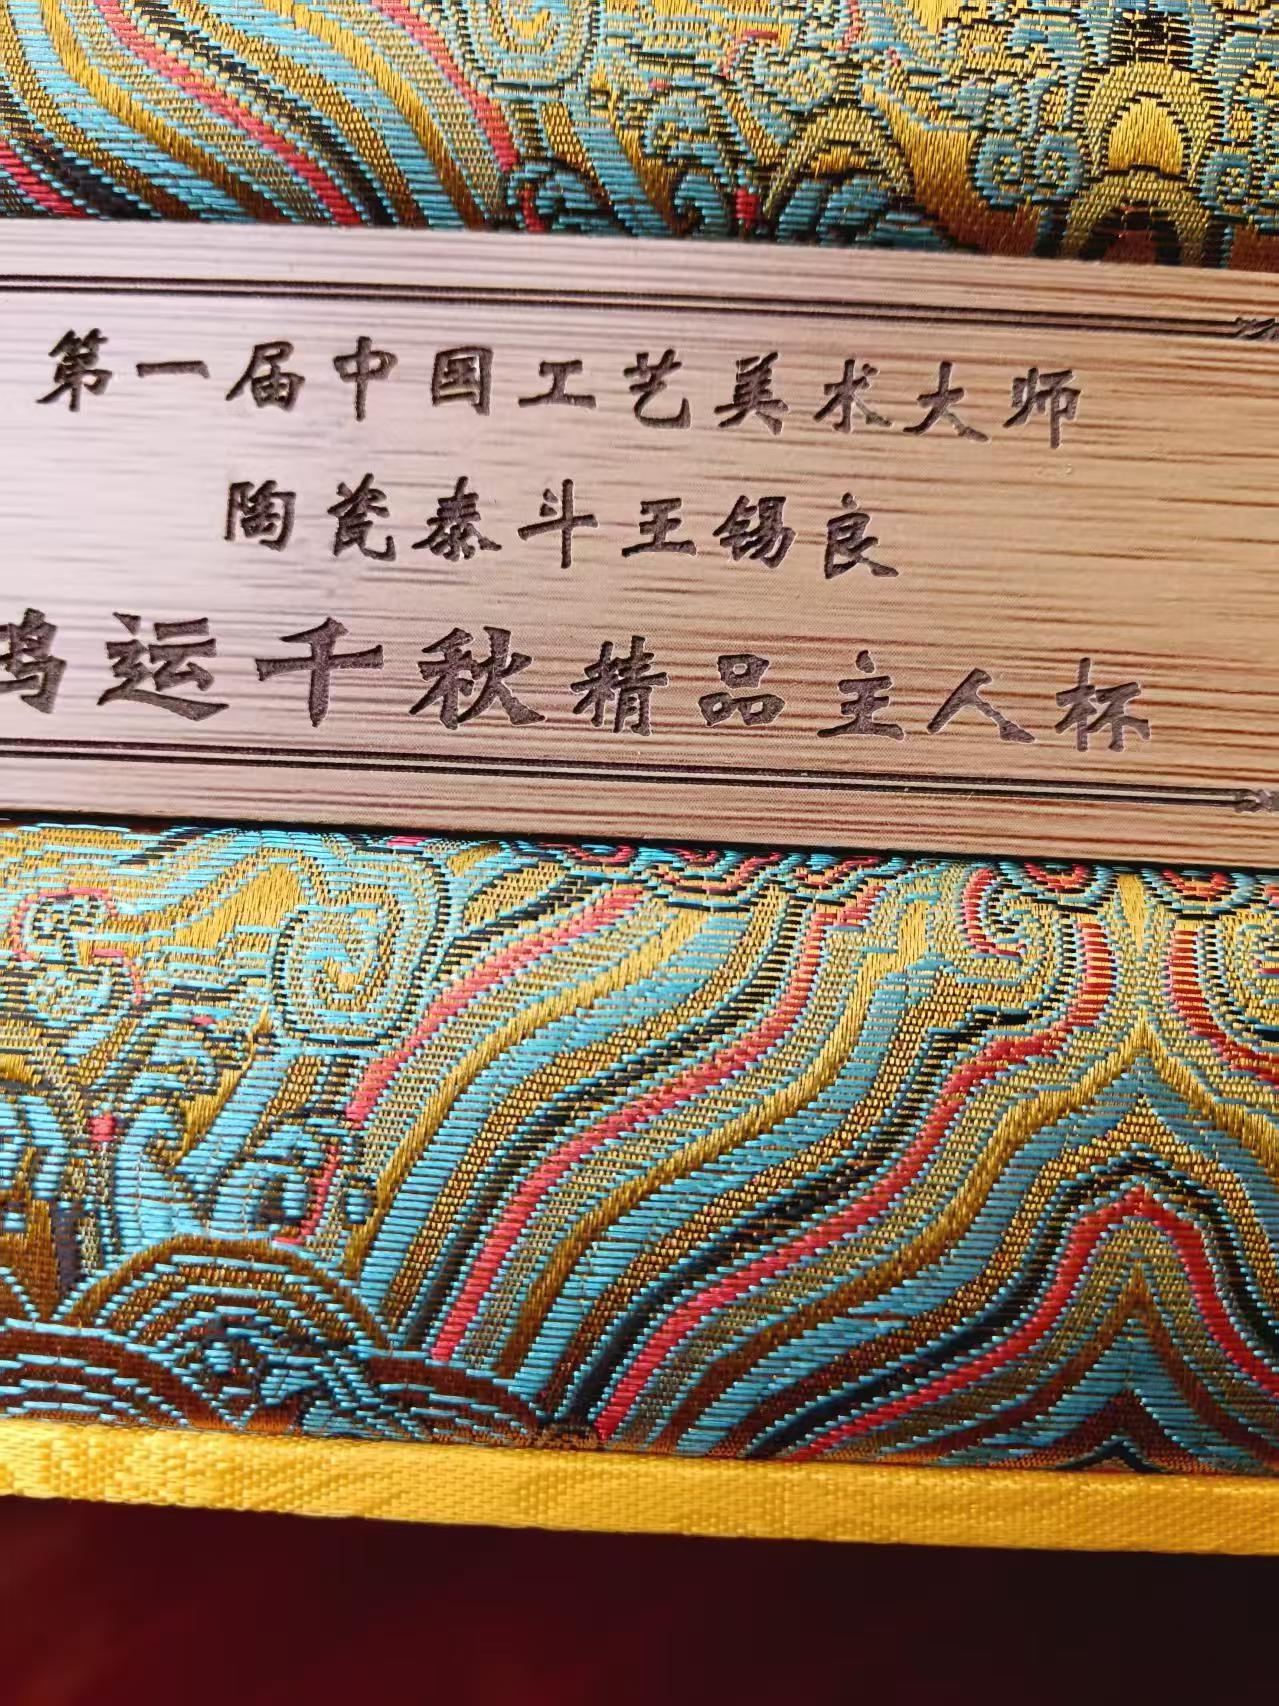 第一届中国工艺美术大师
陶瓷泰斗王锡良
鸿运千秋精品主人杯